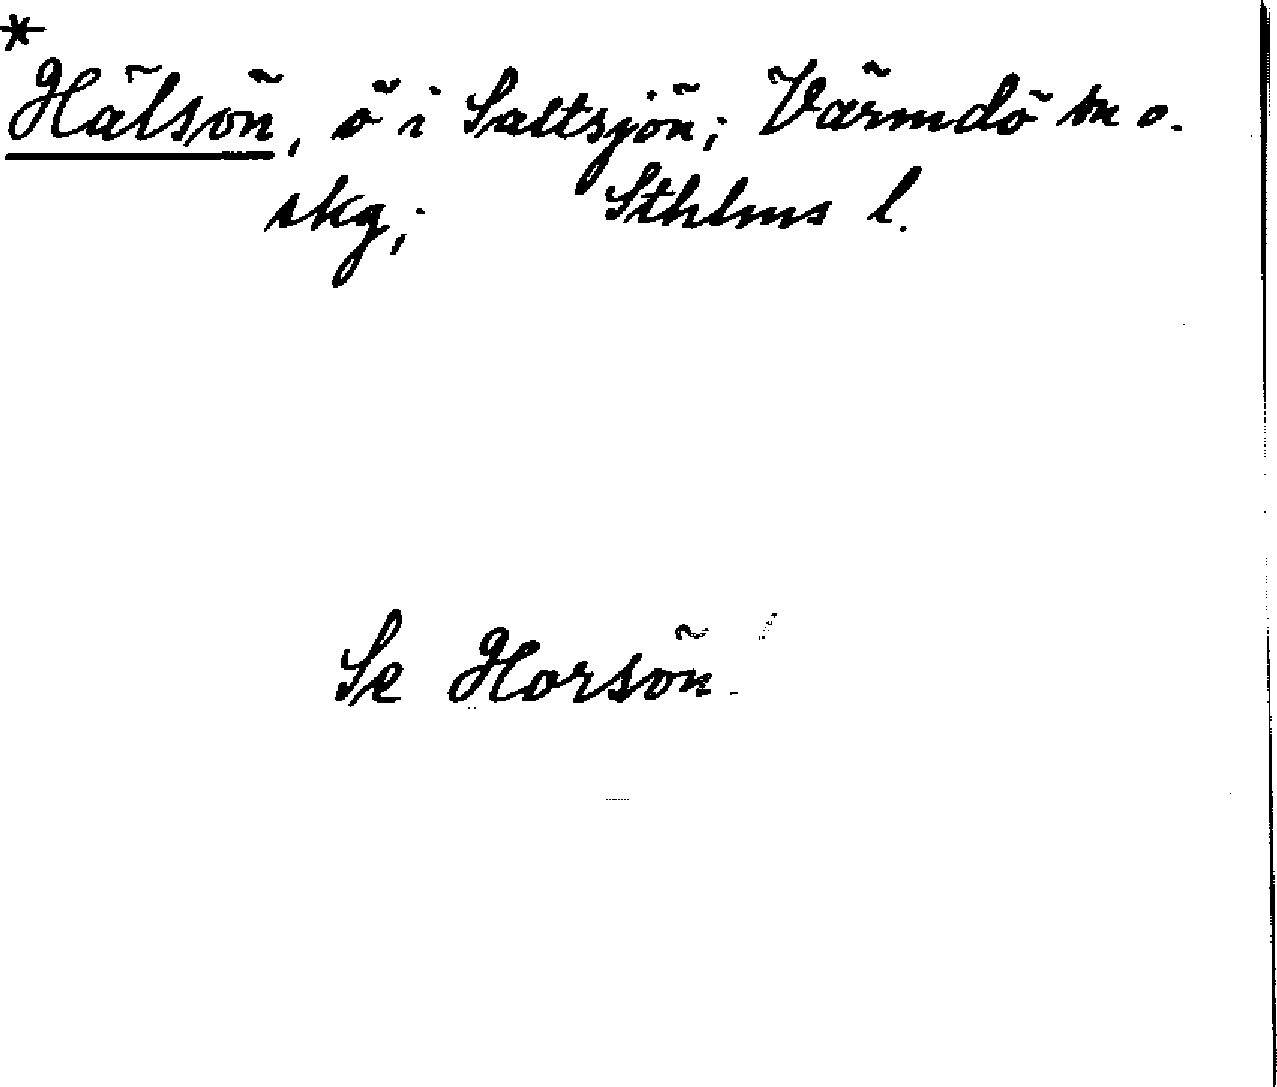 *
Hälsön, ö i Saltsjön; Värmdö sn o.
skg; Sthlms l.
Se Horsön.